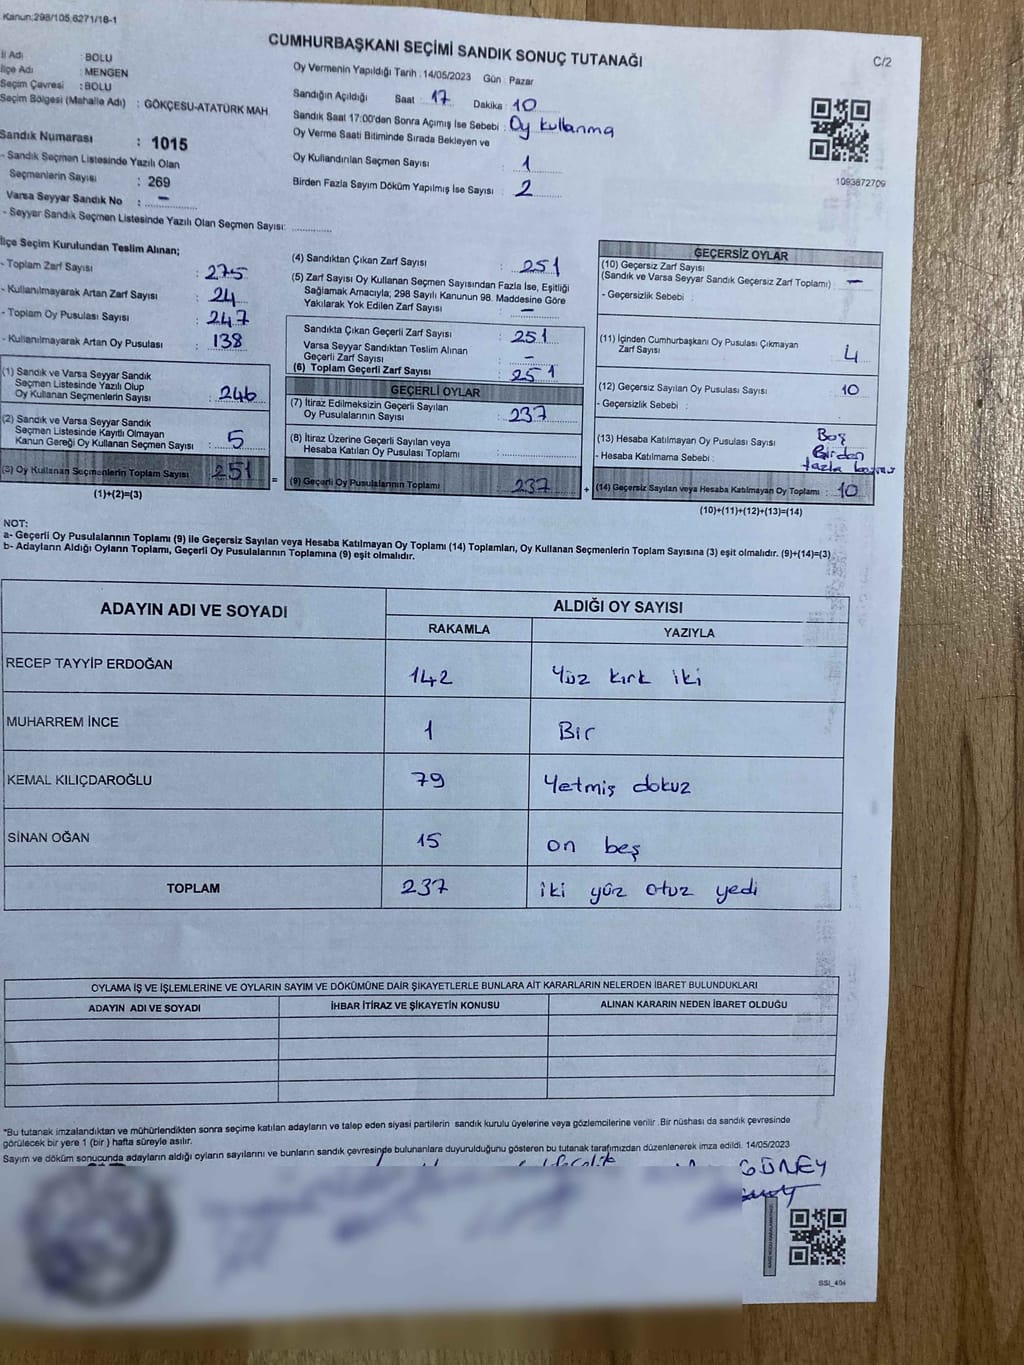 Kanun:298/105,6271/18-1
CUMHURBAŞKANI SEÇİMİ SANDIK SONUÇ TUTANAĞI
C/2
İl Adı : BOLU
İlçe Adı : MENGEN
Seçim Çevresi : BOLU
Seçim Bölgesi (Mahalle Adı) : GÖKÇESU-ATATÜRK MAH
Sandık Numarası : 1015
- Sandık Seçmen Listesinde Yazılı Olan
Seçmenlerin Sayısı : 269
Varsa Seyyar Sandık No : -
- Seyyar Sandık Seçmen Listesinde Yazılı Olan Seçmen Sayısı:
Oy Vermenin Yapıldığı Tarih : 14/05/2023 Gün : Pazar
Sandığın Açıldığı Saat : 17 Dakika : 10
Sandık Saat 17:00'den Sonra Açımış İse Sebebi : Oy kullanma
Oy Verme Saati Bitiminde Sırada Bekleyen ve
Oy Kullandırılan Seçmen Sayısı : 1
Birden Fazla Sayım Döküm Yapılmış İse Sayısı : 2
1093872709
İlçe Seçim Kurulundan Teslim Alınan;
- Toplam Zarf Sayısı : 275
- Kullanılmayarak Artan Zarf Sayısı : 24
- Toplam Oy Pusulası Sayısı : 247
- Kullanılmayarak Artan Oy Pusulası : 138
(1) Sandık ve Varsa Seyyar Sandık
Seçmen Listesinde Yazılı Olup
Oy Kullanan Seçmenlerin Sayısı : 246
(2) Sandık ve Varsa Seyyar Sandık
Seçmen Listesinde Kayıtlı Olmayan
Kanun Gereği Oy Kullanan Seçmen Sayısı : 5
(3) Oy Kullanan Seçmenlerin Toplam Sayısı : 251
(1)+(2)=(3)
(4) Sandıktan Çıkan Zarf Sayısı : 251
(5) Zarf Sayısı Oy Kullanan Seçmen Sayısından Fazla İse, Eşitliği
Sağlamak Amacıyla; 298 Sayılı Kanunun 98. Maddesine Göre
Yakılarak Yok Edilen Zarf Sayısı : -
Sandıkta Çıkan Geçerli Zarf Sayısı : 251
Varsa Seyyar Sandıktan Teslim Alınan
Geçerli Zarf Sayısı : -
(6) Toplam Geçerli Zarf Sayısı : 251
GEÇERLİ OYLAR
(7) İtiraz Edilmeksizin Geçerli Sayılan
Oy Pusulalarının Sayısı : 237
(8) İtiraz Üzerine Geçerli Sayılan veya
Hesaba Katılan Oy Pusulası Toplamı :
= (9) Geçerli Oy Pusulalarının Toplamı : 237 +
GEÇERSİZ OYLAR
(10) Geçersiz Zarf Sayısı
(Sandık ve Varsa Seyyar Sandık Geçersiz Zarf Toplamı) : -
- Geçersizlik Sebebi :
(11) İçinden Cumhurbaşkanı Oy Pusulası Çıkmayan
Zarf Sayısı : 4
(12) Geçersiz Sayılan Oy Pusulası Sayısı : 10
- Geçersizlik Sebebi :
(13) Hesaba Katılmayan Oy Pusulası Sayısı : Boş
- Hesaba Katılmama Sebebi : Birden
fazla
(14) Geçersiz Sayılan veya Hesaba Katılmayan Oy Toplamı : 10
(10)+(11)+(12)+(13)=(14)
NOT:
a- Geçerli Oy Pusulalarının Toplamı (9) ile Geçersiz Sayılan veya Hesaba Katılmayan Oy Toplamı (14) Toplamları, Oy Kullanan Seçmenlerin Toplam Sayısına (3) eşit olmalıdır. (9)+(14)=(3)
b- Adayların Aldığı Oyların Toplamı, Geçerli Oy Pusulalarının Toplamına (9) eşit olmalıdır.
ADAYIN ADI VE SOYADI
ALDIĞI OY SAYISI
RAKAMLA YAZIYLA
RECEP TAYYİP ERDOĞAN 142 Yüz kırk iki
MUHARREM İNCE 1 Bir
KEMAL KILIÇDAROĞLU 79 Yetmiş dokuz
SİNAN OĞAN 15 on beş
TOPLAM 237 iki yüz otuz yedi
OYLAMA İŞ VE İŞLEMLERİNE VE OYLARIN SAYIM VE DÖKÜMÜNE DAİR ŞİKAYETLERLE BUNLARA AİT KARARLARIN NELERDEN İBARET BULUNDUKLARI
ADAYIN ADI VE SOYADI İHBAR İTİRAZ VE ŞİKAYETİN KONUSU ALINAN KARARIN NEDEN İBARET OLDUĞU
*Bu tutanak imzalandıktan ve mühürlendikten sonra seçime katılan adayların ve talep eden siyasi partilerin sandık kurulu üyelerine veya gözlemcilerine verilir. Bir nüshası da sandık çevresinde
görülecek bir yere 1 (bir) hafta süreyle asılır.
Sayım ve döküm sonucunda adayların aldığı oyların sayılarını ve bunların sandık çevresinde bulunanlara duyurulduğunu gösteren bu tutanak tarafımızdan düzenlenerek imza edildi. 14/05/2023
GÜNEY
SSI_404